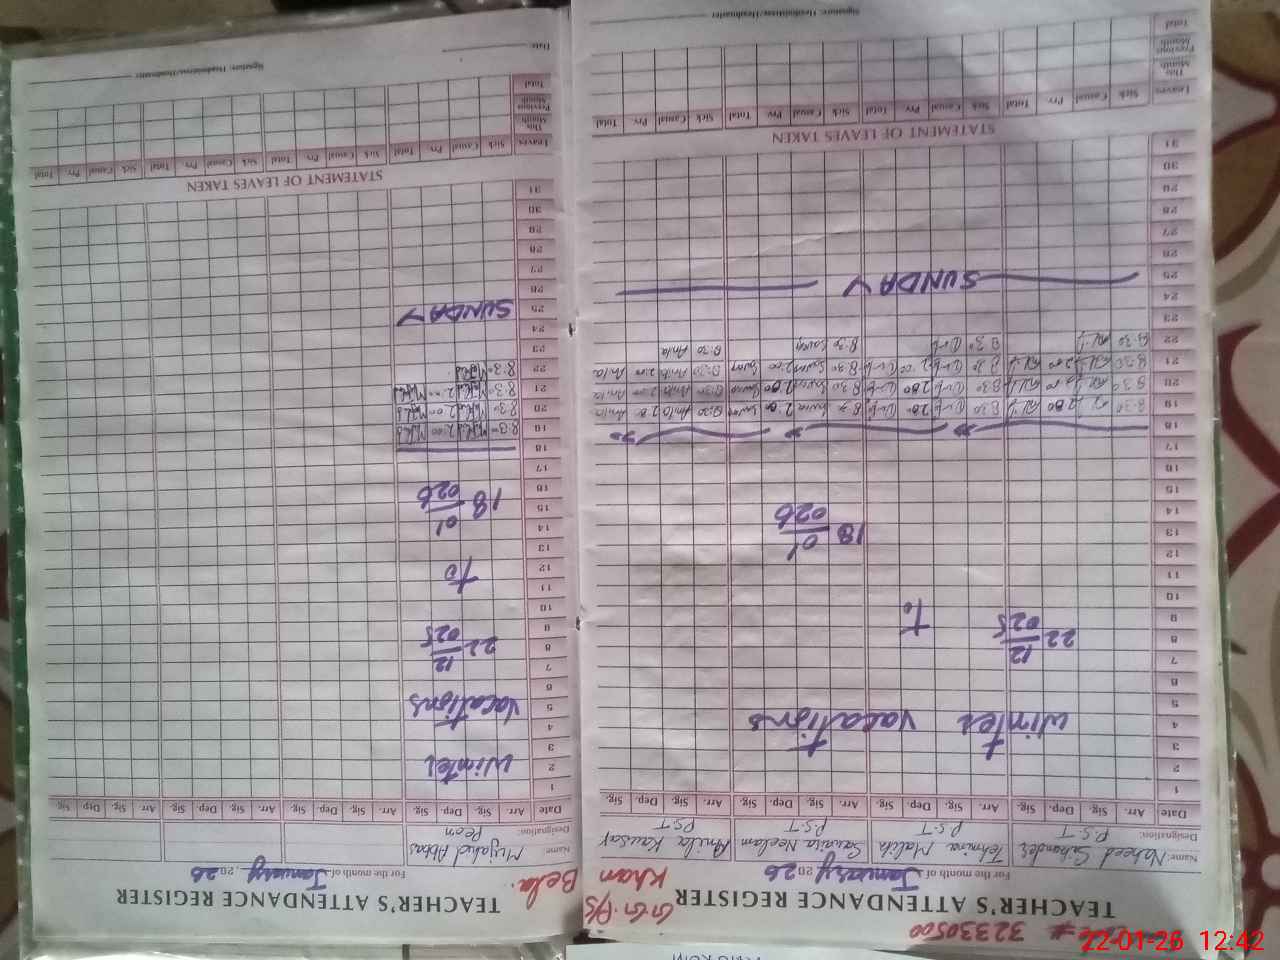 32330500
TEACHER'S ATTENDANCE REGISTER
For the month of January 2026
Name: Naheed Sikander Tehmina Malik Sawaira Neelam Anila Kausar
Designation: P.S.T P.S.T P.S.T P.S.T
Date Arr. Sig. Dep. Sig. Arr. Sig. Dep. Sig. Arr. Sig. Dep. Sig. Arr. Sig. Dep. Sig.
1
2
3
4 winter vacations
5
6
7
8 22 12 025
9 to
10
11
12
13 18 01 026
14
15
16
17
18
19 8:30 2:00 8:30 2:00 2:00 8:30 Anila 2:00 Anila
20 8:30 2:00 8:30 2:00 8:30 2:00 8:30 Anila 2:00 Anila
21 8:30 2:00 8:30 2:00 8:30 2:00 8:30 Anila 2:00 Anila
22 8:30 8:30 8:30 8:30 Anila
23
24
25 SUNDAY
26
27
28
29
30
31
STATEMENT OF LEAVES TAKEN
Leaves Sick Casual Prv Total Sick Casual Prv Total Sick Casual Prv Total Sick Casual Prv Total
This Month
Previous Month
Total
Signature: Headmistress/Headmaster
G.G.P/S Khan Bela.
TEACHER'S ATTENDANCE REGISTER
For the month of January, 2026
Name: Mujahid Abbas
Designation: Peon
Date Arr. Sig. Dep. Sig. Arr. Sig. Dep. Sig. Arr. Sig. Dep. Sig. Arr. Sig. Dep. Sig.
1
2 winter
3
4
5 vacations
6
7
8 22 12 025
9
10
11
12 to
13
14
15 18 01 026
16
17
18
19 8:30 2:00
20 8:30 2:00
21 8:30 2:00
22 8:30
23
24
25 SUNDAY
26
27
28
29
30
31
STATEMENT OF LEAVES TAKEN
Leaves Sick Casual Prv Total Sick Casual Prv Total Sick Casual Prv Total Sick Casual Prv Total
This Month
Previous Month
Total
Date: Signature: Headmistress/Headmaster
22-01-26 12:42